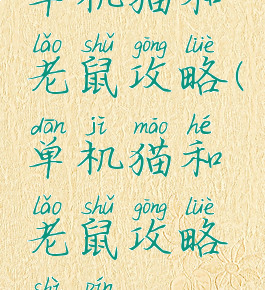 单机猫和
lǎo shǔ gōng lüè
老鼠攻略(
dān jī māo hé
单机猫和
lǎo shǔ gōng lüè
老鼠攻略
shì pín